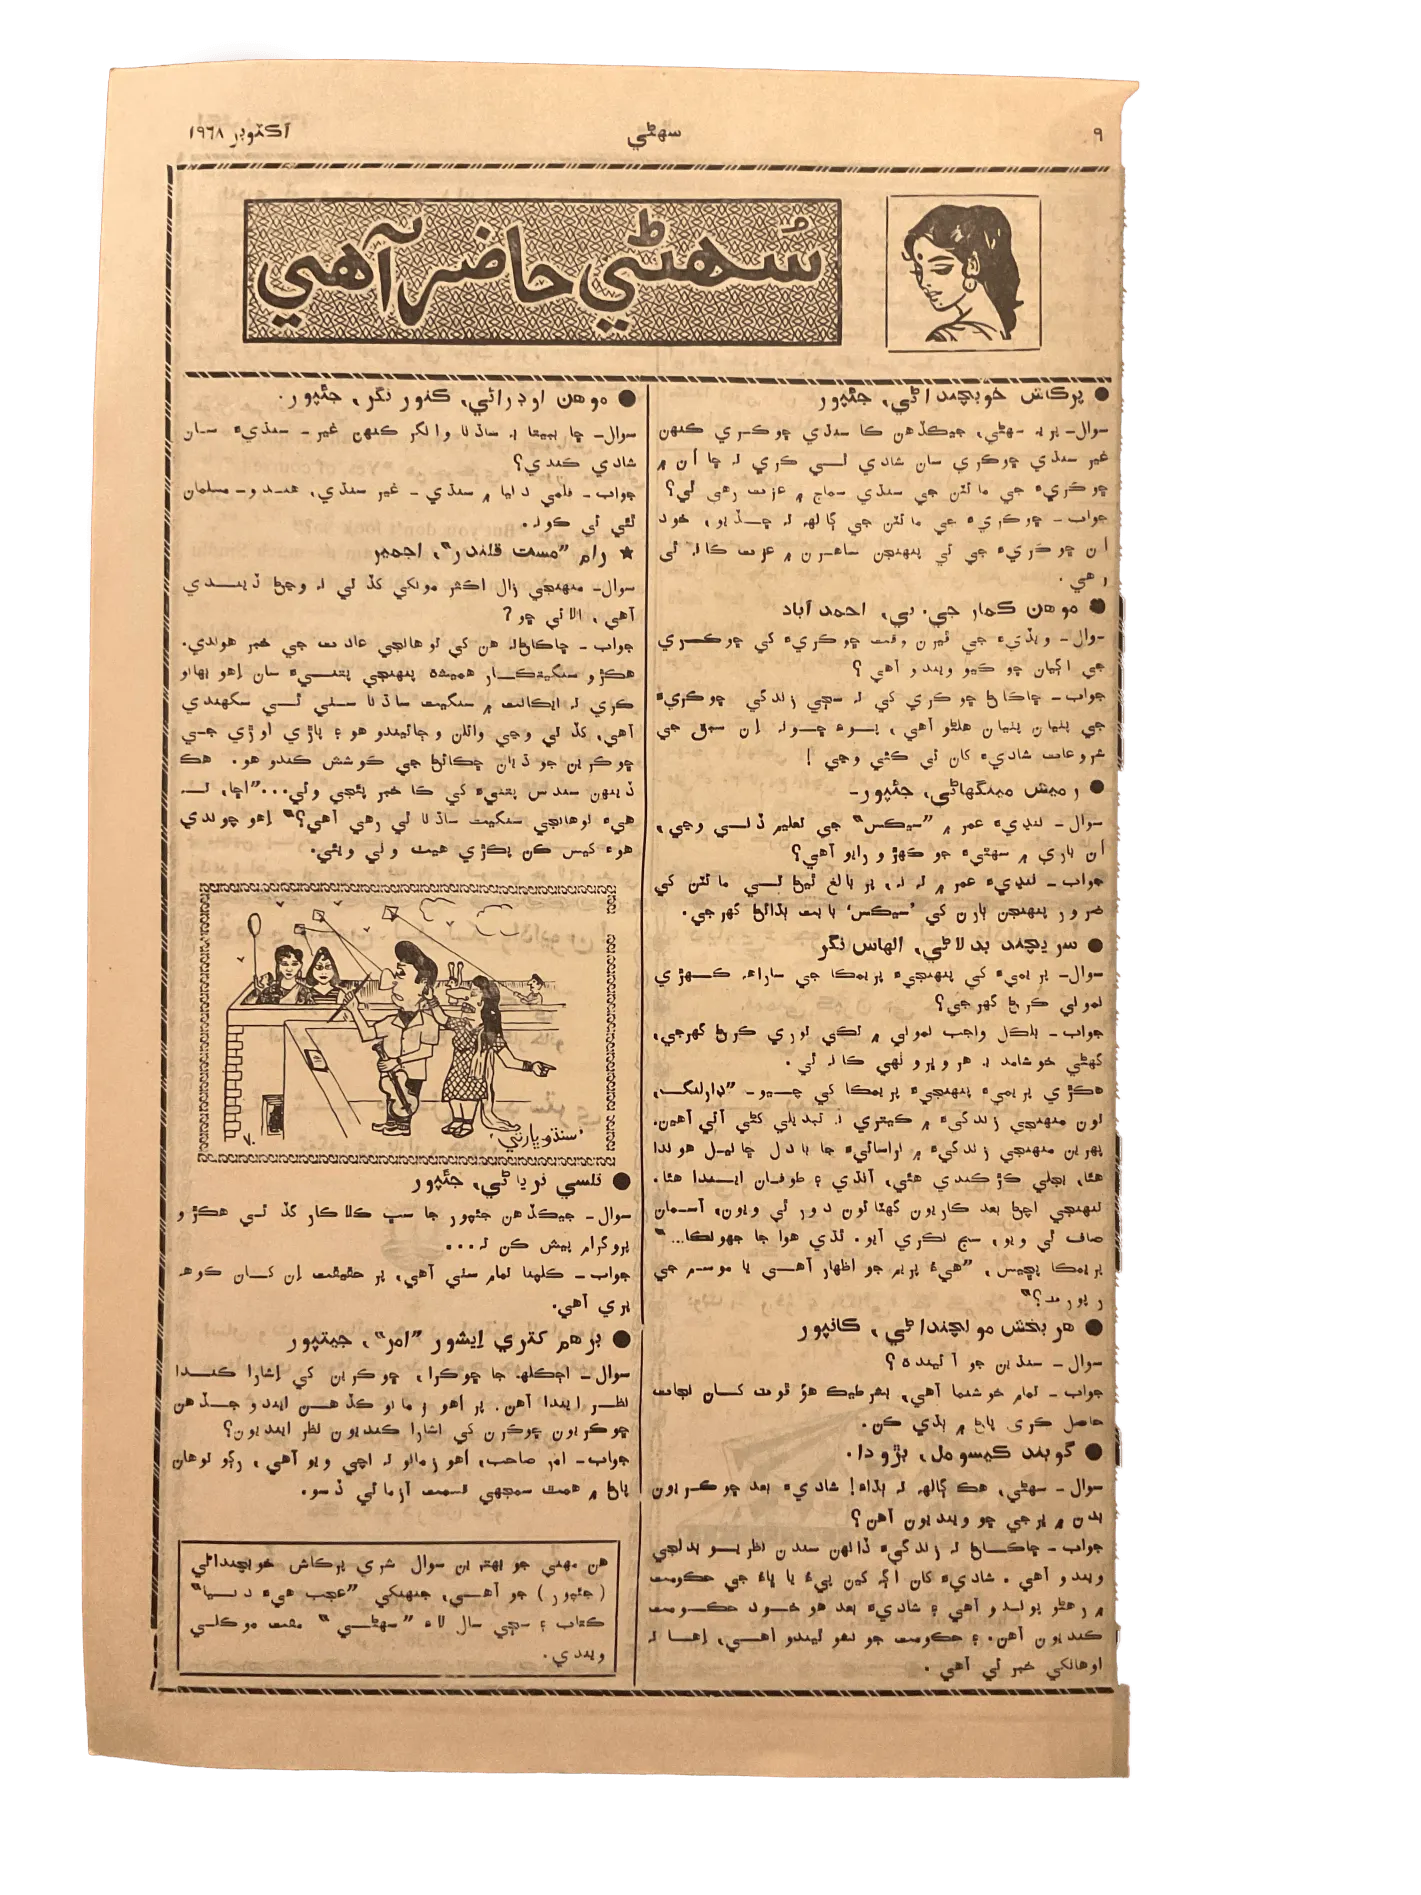 ٩
سهڻي
آڪٽوبر ١٩٦٨
سُهڻي حاضر آهي
● پرڪاش خوبچنداڻي، جئپور
سوال- ڀر ۾ سهڻي، جيڪڏهن ڪا سنڌي ڇوڪري ڪنهن
غير سنڌي ڇوڪري سان شادي ٿي ڪري ته ڇا اُن ۾
ڇوڪريءَ جي مائٽن جي سنڌي سماج ۾ عزت رهي ٿي؟
جواب- ڇوڪريءَ جي مائٽن جي ڳالهه ته ڇڏيو، خود
اُن ڇوڪريءَ جي ئي پنهنجن ساهرن ۾ عزت ڪانه ٿي
رهي.
● موهن ڪمار جي. ٽي، احمد آباد
سوال- ويڏيءَ جي ڦيرن وقت ڇوڪريءَ کي ڇوڪري
جي اڳيان ڇو ڪيو ويندو آهي؟
جواب- ڇاڪاڻ ڇوڪري کي ته سڄي زندگي ڇوڪريءَ
جي پٺيان پٺيان هلڻو آهي، پوءِ ڇو نه اِن سبق جي
شروعات شاديءَ کان ئي ڪئي وڃي!
● رميش مينگهاڻي، جئپور-
سوال- ننڍيءَ عمر ۾ ”سيڪس“ جي تعليم ڏني وڃي،
اُن باري ۾ سهڻيءَ جو ڪهڙو رايو آهي؟
جواب- ننڍيءَ عمر ۾ نه نه، پر بالغ ٿيڻ تي مائٽن کي
ضرور پنهنجن ٻارن کي ’سيڪس‘ بابت ٻڌائڻ گهرجي.
● سريچند بدلاڻي، الهاس نگر
سوال- پريميءَ کي پنهنجيءَ پريمڪا جي ساراهه ڪهڙي
نموني ڪرڻ گهرجي؟
جواب- بلڪل واجب نموني ۾ نڪي ٿوري ڪرڻ گهرجي،
گهڻي خوشامد به هروڀرو ٺهي ڪانه ٿي.
هڪڙي پريميءَ پنهنجيءَ پريمڪا کي چيو- ”ڊارلنگ،
تون منهنجي زندگيءَ ۾ ڪيتري نه تبديلي کڻي آئي آهين.
پهرين منهنجي زندگيءَ ۾ نراسائيءَ جا بادل ڇانيل هوندا
هئا، بجلي ڪڙڪندي هئي، آنڌي ۽ طوفان ايندا هئا.
تنهنجي اچڻ بعد ڪاريون گهٽائون دور ٿي ويون، آسمان
صاف ٿي ويو، سج نڪري آيو. ٿڌي هوا جا جهونڪا...“
پريمڪا پڇيس، ”هيءُ پريم جو اظهار آهي يا موسم جي
رپورٽ؟“
● هربخش مولچنداڻي، ڪانپور
سوال- سنڌين جو آئينده؟
جواب- تمام خوشنما آهي، بشرطيڪ هو ڦوٽ کان نجات
حاصل ڪري پاڻ ۾ ٻڌي ڪن.
● گوبند ڪيسومل، بڙودا.
سوال- سهڻي، هڪ ڳالهه ته ٻڌاءِ! شاديءَ بعد ڇوڪريون
بدن ۾ ڀرجي ڇو وينديون آهن؟
جواب- ڇاڪاڻ ته زندگيءَ ڏانهن سندن نظريو بدلجي
ويندو آهي. شاديءَ کان اڳ کين پيءُ يا ڀاءُ جي حڪومت
۾ رهڻو پوندو آهي ۽ شاديءَ بعد هو خود حڪومت
ڪنديون آهن. ۽ حڪومت جو نشو ٿيندو آهي، اِها ته
اوهانکي خبر ئي آهي.
● موهن اوڊراڻي، ڪنور نگر، جئپور.
سوال- ڇا ببيتا به ساڌنا وانگر ڪنهن غير- سنڌيءَ سان
شادي ڪندي؟
جواب- فلمي دنيا ۾ سنڌي- غير سنڌي، هندو- مسلمان
ٿئي ئي ڪونه.
★ رام ”مست قلندر“، اجمير
سوال- منهنجي زال اڪثر مونکي گڏ ئي نه وڃڻ ڏيندي
آهي، الائي ڇو؟
جواب- ڇاڪاڻ ته هن کي توهانجي عادت جي خبر هوندي.
هڪڙو سنگيتڪار هميشه پنهنجي پتنيءَ سان اِهو بهانو
ڪري ته ايڪانت ۾ سنگيت ساڌنا سٺي ٿي سگهندي
آهي، گڏ ئي وڃي وائلن وڄائيندو هو ۽ پاڙي اوڙي جي
ڇوڪرين جو ڌيان ڇڪائڻ جي ڪوشش ڪندو هو. هڪ
ڏينهن سندس پتنيءَ کي ڪا خبر پئجي وئي... ”اڇا، ته
هيءَ توهانجي سنگيت ساڌنا ٿي رهي آهي؟“ اِهو چوندي
هوءَ کيس ڪن پڪڙي هيٺ وٺي ويئي.
’سنڌو ڀارتي‘
● تلسي نرياڻي، جئپور
سوال- جيڪڏهن جئپور جا سڀ ڪلاڪار گڏ ٿي هڪڙو
پروگرام پيش ڪن ته...
جواب- ڪلپنا تمام سٺي آهي، پر حقيقت اِن کان ڪوهه
پري آهي.
● برهم کتري اِيشور ”امر“، جيتپور
سوال- اڄڪلهه جا ڇوڪرا، ڇوڪرين کي اِشارا ڪندا
نظر ايندا آهن. پر اهو زمانو ڪڏهن ايندو جڏهن
ڇوڪريون ڇوڪرن کي اشارا ڪنديون نظر اينديون؟
جواب- امر صاحب، اُهو زمانو ته اچي ويو آهي، رڳو توهان
پاڻ ۾ همت سمجهي قسمت آزمائي ڏسو.
هن مهني جو بهترين سوال شري پرڪاش خوبچنداڻي
(جئپور) جو آهي، جنهنکي ”عجب هيءَ دنيا“
ڪتاب ۽ سڄي سال لاءِ ”سهڻي“ مفت موڪلي
ويندي.